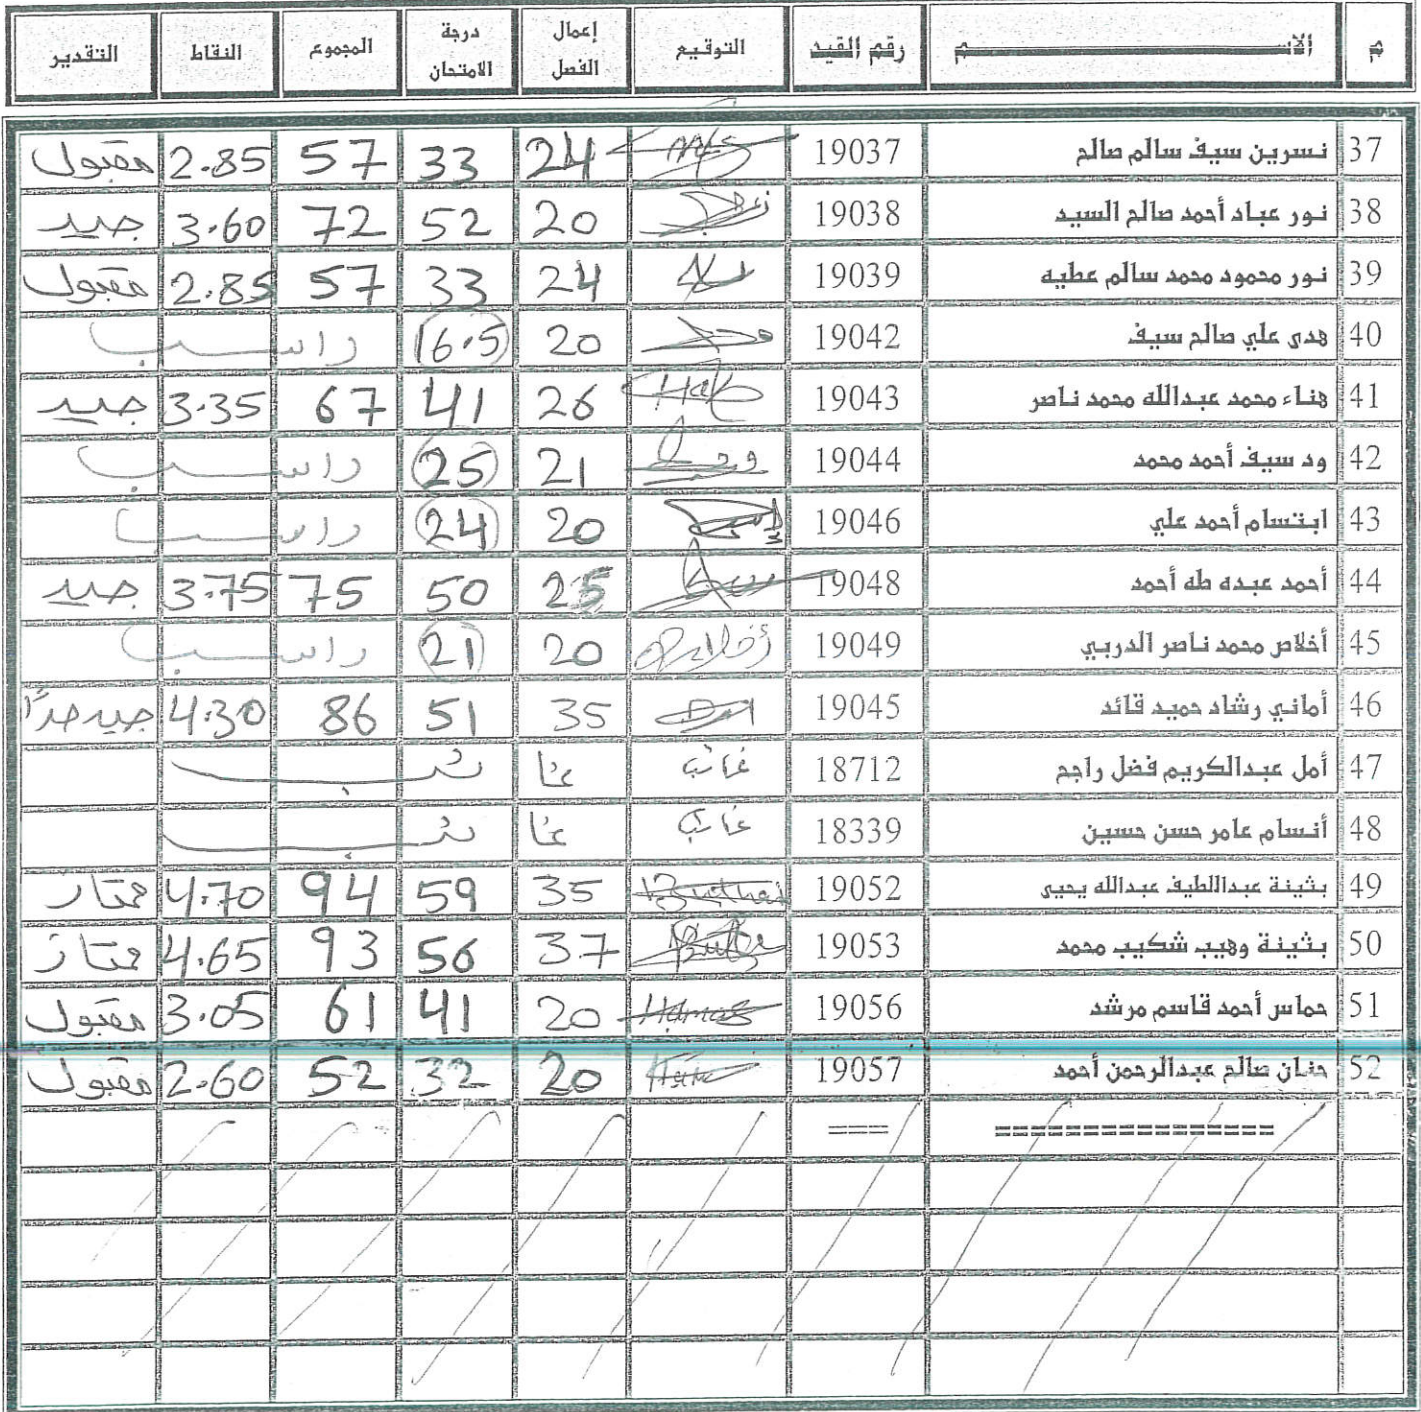 م الاســـــــم رقم القيد التوقيع إعمال الفصل درجة الامتحان المجموع النقاط التقدير
37 نسرين سيف سالم صالح 19037 24 33 57 2.85 مقبول
38 نور عباد أحمد صالح السيد 19038 20 52 72 3.60 جيد
39 نور محمود محمد سالم عطيه 19039 24 33 57 2.85 مقبول
40 هدى علي صالح سيف 19042 20 16.5 راسب
41 هناء محمد عبدالله محمد ناصر 19043 26 41 67 3.35 جيد
42 ود سيف أحمد محمد 19044 21 25 راسب
43 ابتسام أحمد علي 19046 20 24 راسب
44 أحمد عبده طه أحمد 19048 25 50 75 3.75 جيد
45 أخلاص محمد ناصر الدربي 19049 20 21 راسب
46 أماني رشاد حميد قائد 19045 35 51 86 4.30 جيد جداً
47 أمل عبدالكريم فضل راجح 18712 غائب غائب
48 أنسام عامر حسن حسين 18339 غائب غائب
49 بثينة عبداللطيف عبدالله يحيى 19052 35 59 94 4.70 ممتاز
50 بثينة وهيب شكيب محمد 19053 37 56 93 4.65 ممتاز
51 حماس أحمد قاسم مرشد 19056 Hamas 20 41 61 3.05 مقبول
52 حنان صالح عبدالرحمن أحمد 19057 20 32 52 2.60 مقبول
================ ===